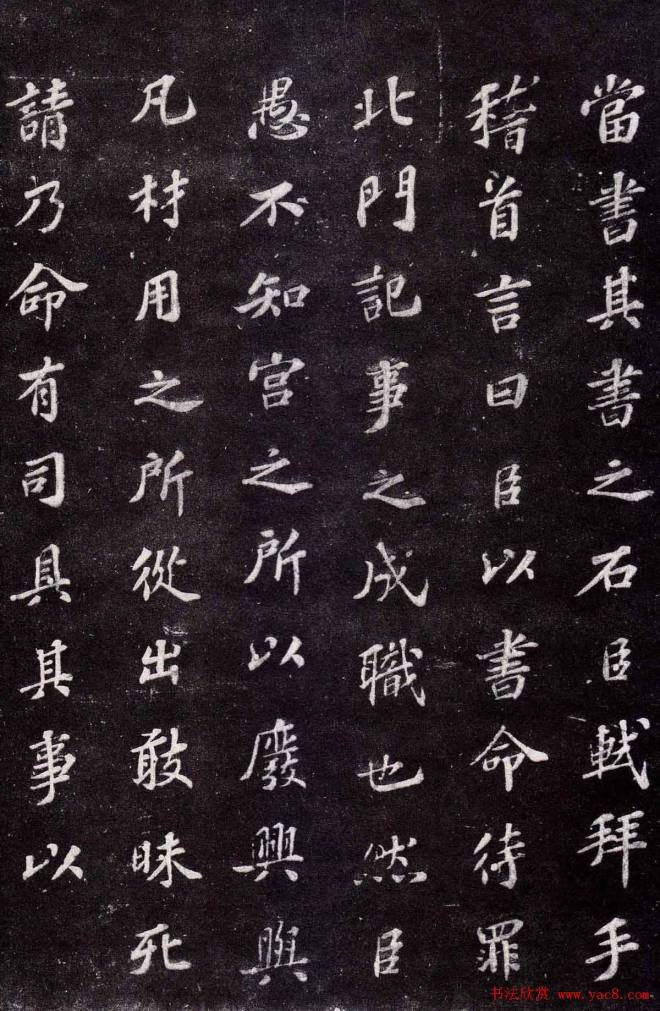 當書其書之石臣軾拜手
稽首言曰臣以書命待罪
北門記事之成職也然臣
愚不知宮之所以廢興與
凡材用之所從出敢昧死
請乃命有司具其事以
书法欣赏 www.yac8.com